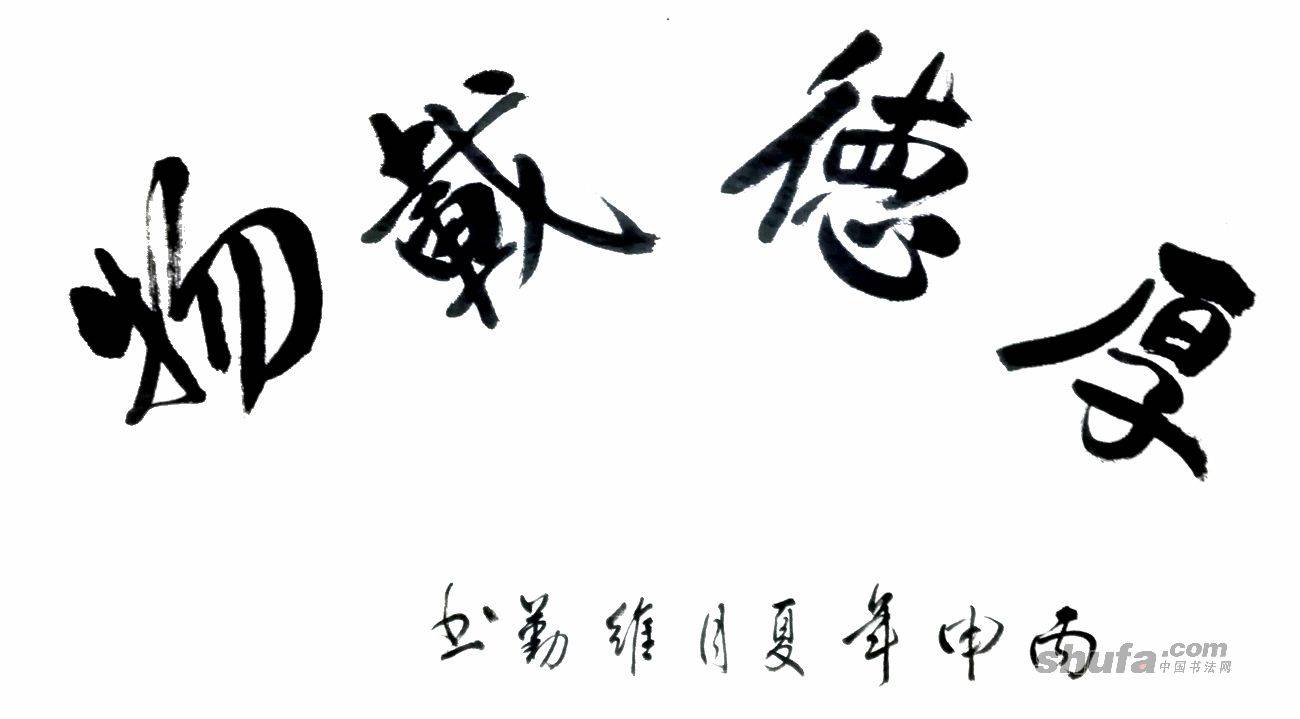 厚德载物
丙申年夏月维勤书
shufa.com
中国书法网